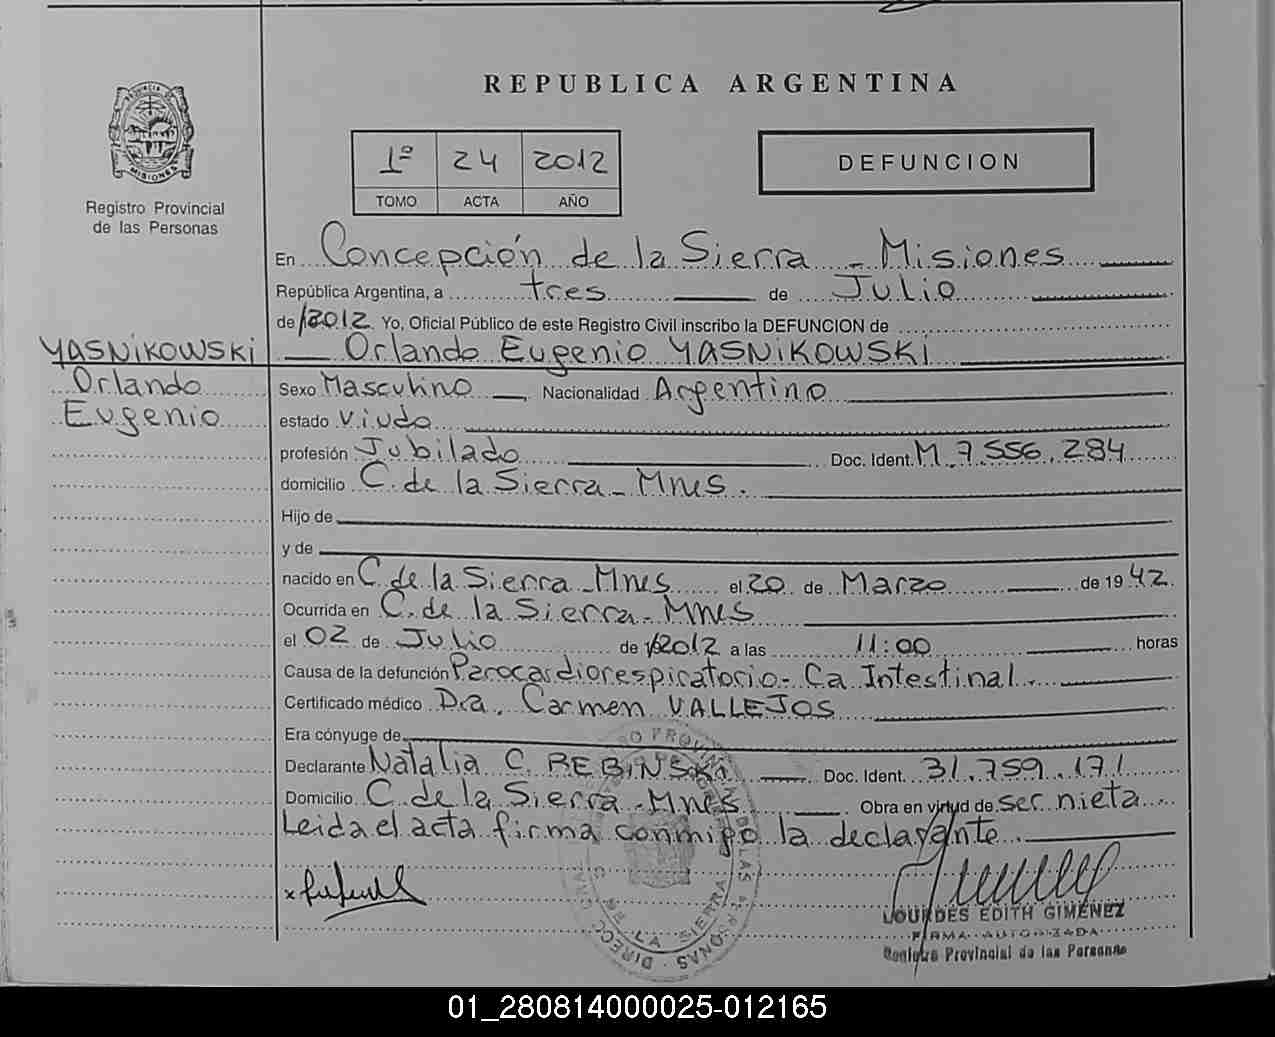 REPUBLICA ARGENTINA
PROVINCIA DE
MISIONES
Registro Provincial
de las Personas
1º 24 2012
TOMO ACTA AÑO
DEFUNCION
En Concepción de la Sierra - Misiones
República Argentina, a tres de Julio
de 2012 Yo, Oficial Público de este Registro Civil inscribo la DEFUNCION de
YASNIKOWSKI
Orlando
Eugenio
Orlando Eugenio YASNIKOWSKI
Sexo Masculino Nacionalidad Argentino
estado Viudo
profesión Jubilado Doc. Ident. M. 7.556.284
domicilio C. de la Sierra - Mnes.
Hijo de
y de
nacido en C. de la Sierra - Mnes el 20 de Marzo de 1942.
Ocurrida en C. de la Sierra - Mnes
el 02 de Julio de 2012 a las 11:00 horas
Causa de la defunción Parocardiorespiratorio - Ca Intestinal.
Certificado médico Dra. Carmen VALLEJOS
Era cónyuge de
Declarante Natalia C. REBINSKi Doc. Ident. 31.759.171
Domicilio C. de la Sierra - Mnes Obra en virtud de ser nieta
Leida el acta firma conmigo la declarante.
LOURDES EDITH GIMENEZ
FIRMA AUTORIZADA
Registro Provincial de las Personas
DE LA SIERRA
01_280814000025-012165